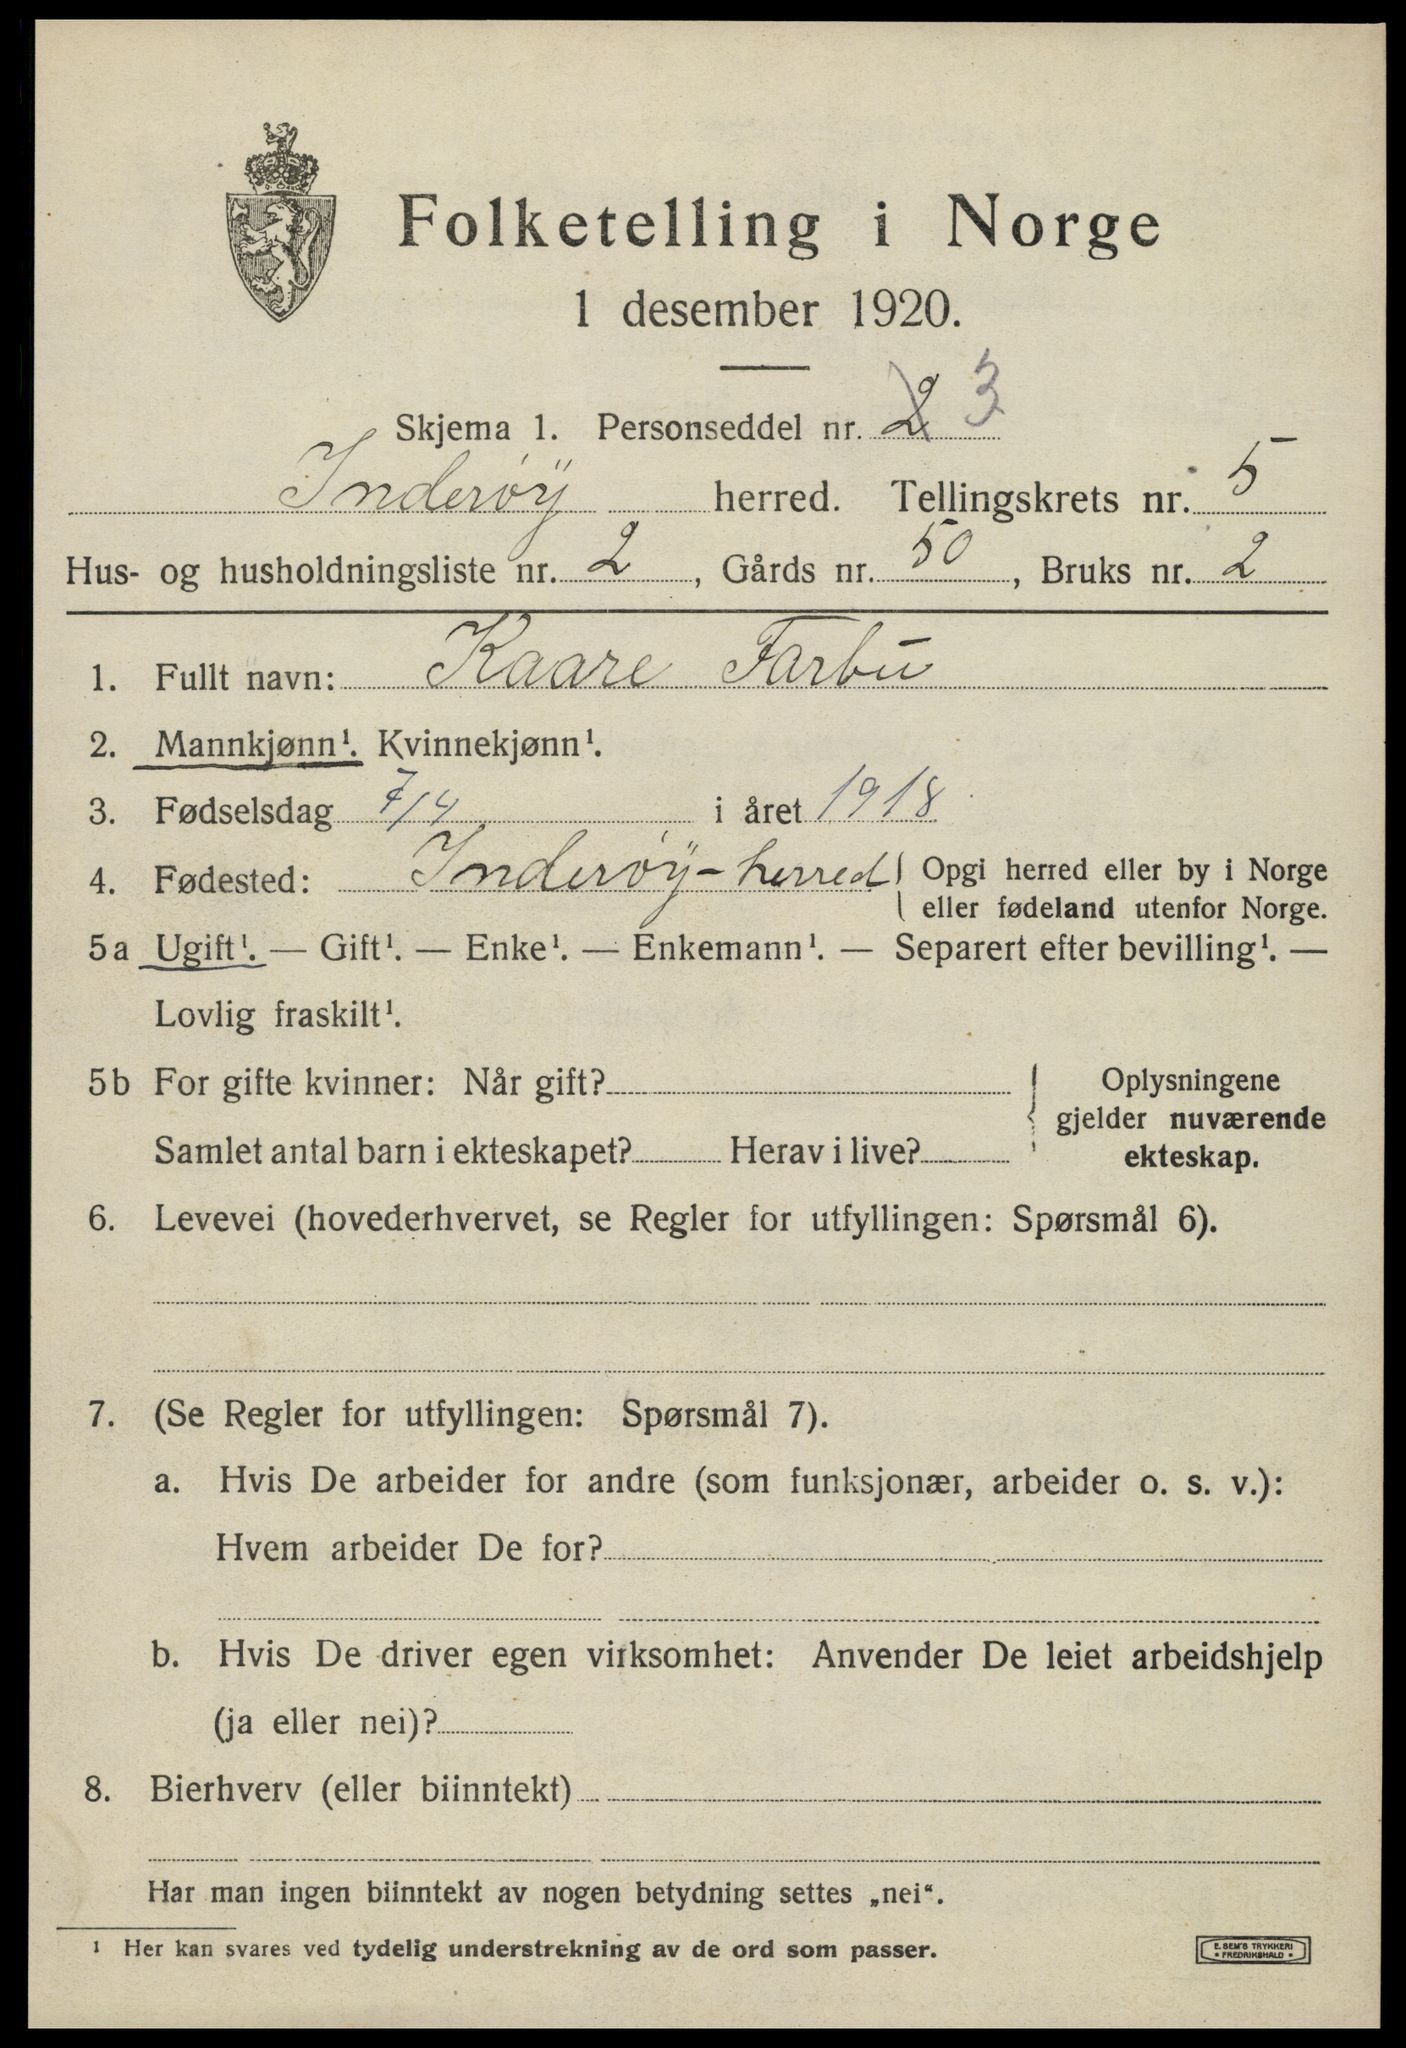 Folketelling i Norge
1 desember 1920.
Skjema 1. Personseddel nr. 2 3
Inderøy herred. Tellingskrets nr. 5
Hus- og husholdningsliste nr. 2, Gårds nr. 50, Bruks nr. 2
1. Fullt navn: Kaare Farbu
2. Mannkjønn¹. Kvinnekjønn¹.
3. Fødselsdag 7/4 i året 1918
4. Fødested: Inderøy-herred { Opgi herred eller by i Norge
eller fødeland utenfor Norge.
5a Ugift¹. — Gift¹. — Enke¹. — Enkemann¹. — Separert efter bevilling¹. —
Lovlig fraskilt¹.
5b For gifte kvinner: Når gift? { Oplysningene
gjelder nuværende
Samlet antal barn i ekteskapet? Herav i live? ekteskap.
6. Levevei (hovederhvervet, se Regler for utfyllingen: Spørsmål 6).
7. (Se Regler for utfyllingen: Spørsmål 7).
a. Hvis De arbeider for andre (som funksjonær, arbeider o. s. v.):
Hvem arbeider De for?
b. Hvis De driver egen virksomhet: Anvender De leiet arbeidshjelp
(ja eller nei)?
8. Bierhverv (eller biinntekt)
Har man ingen biinntekt av nogen betydning settes „nei“.
¹ Her kan svares ved tydelig understrekning av de ord som passer.
E. SEM'S TRYKKERI
• FREDRIKSHALD •